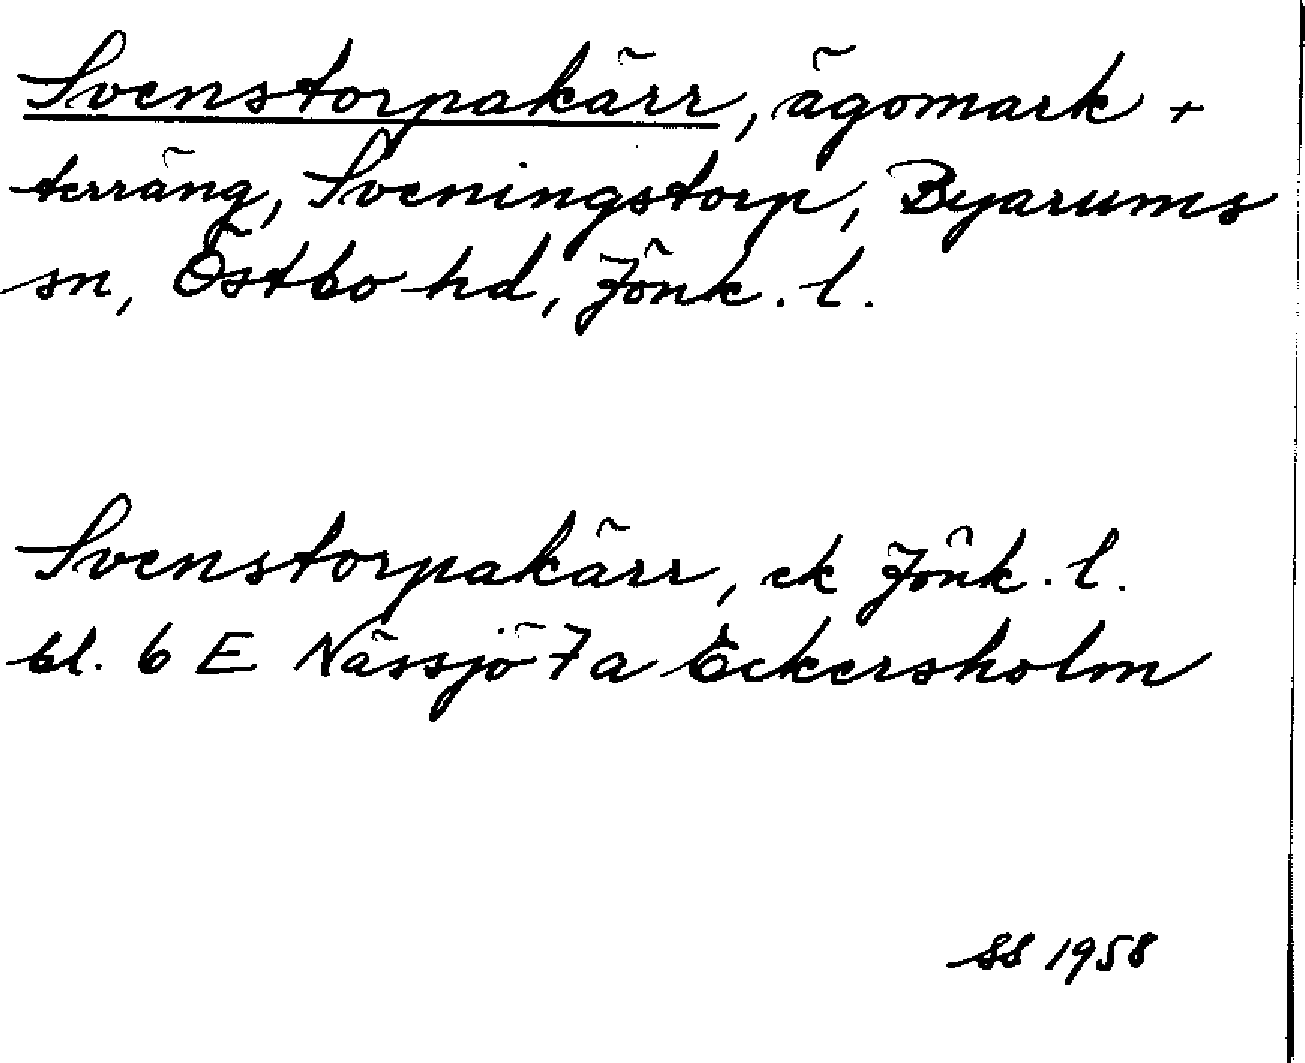 Svenstorpakärr, ägomark +
terräng, Sveningstorp, Byarums
sn, Östbo hd, Jönk. l.
Svenstorpakärr, ek Jönk. l.
bl. 6 E Nässjö 7a Eckersholm
SS 1958